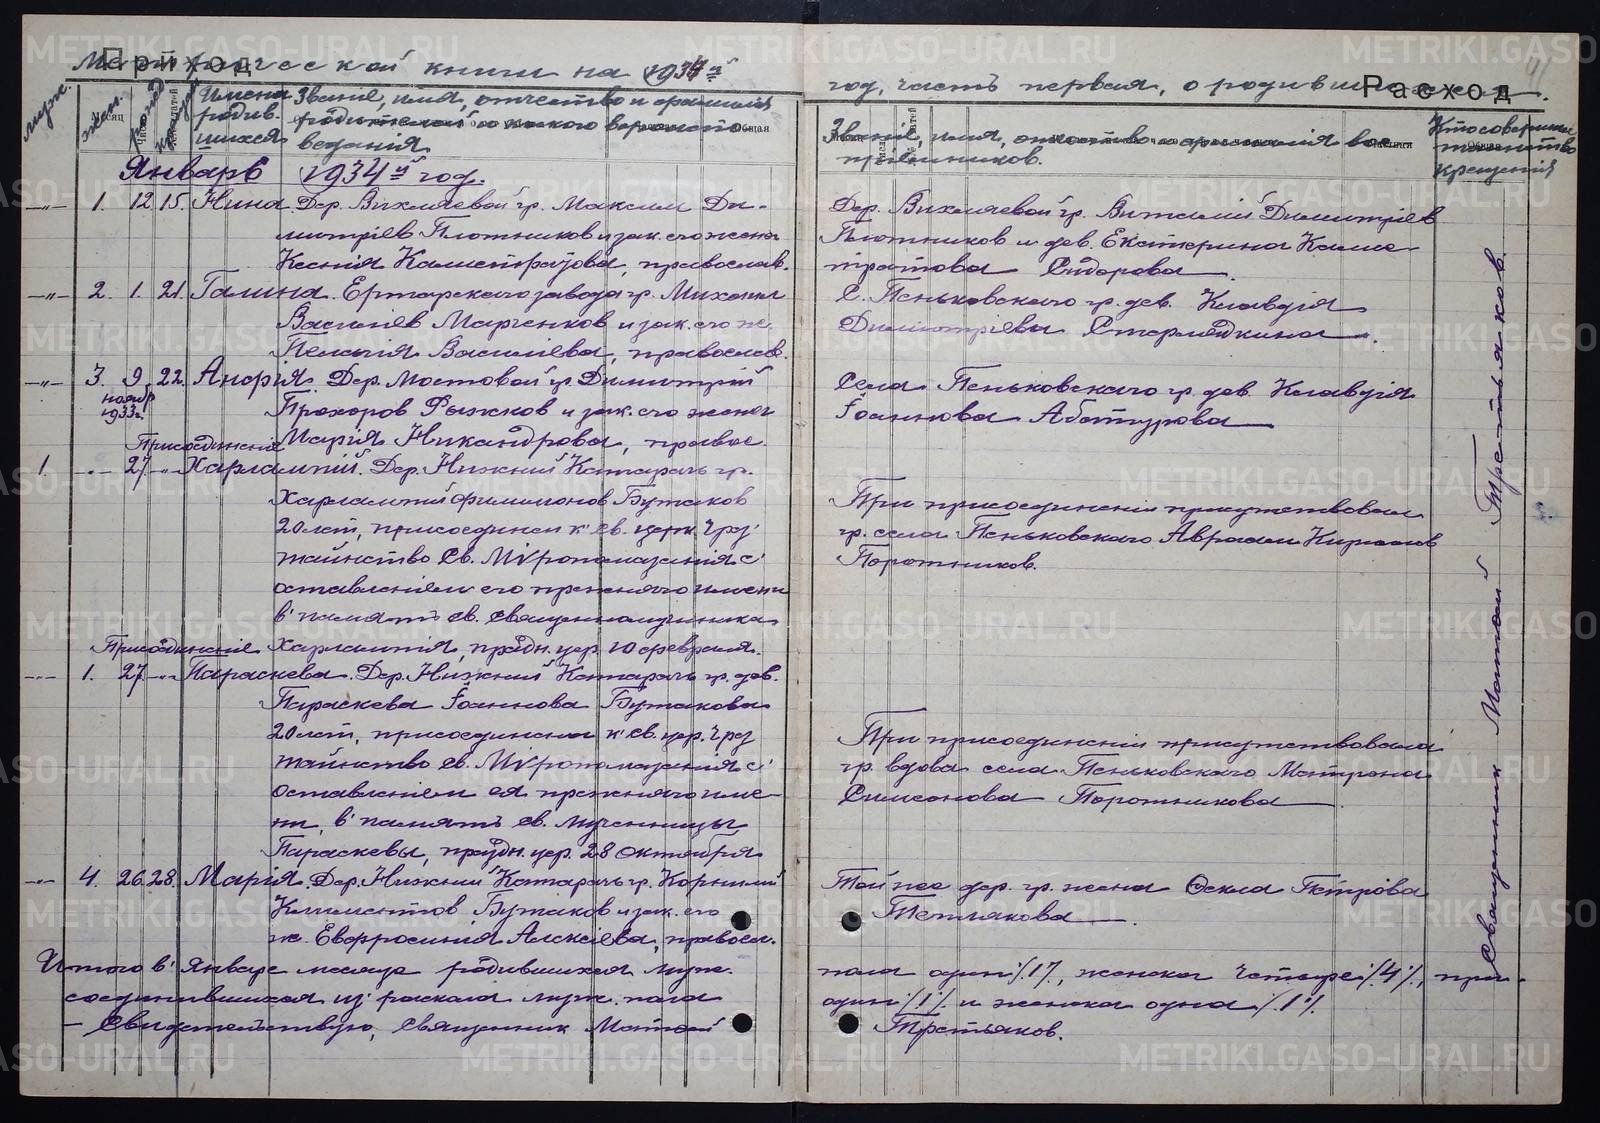 Приход
Метрической книги на 1934й
год, часть первая, о родившихся.
Расход
муж.
жен.
Имена родив-шихся
Званіе, имя, отчество и фамилія
родителей и какого вероиспо-
веданія
Званіе, имя, отчество и фамилія вос-
пріемников.
Кто совершал
таинство
крещенія
Январь 1934й год.
-"- 1. 12 15. Нина. Дер. Вихляевой гр. Максим Ди-
митріев Плотников и зак. его жена
Ксенія Калистратова, православ.
Дер. Вихляевой гр. Виталий Димитріев
Плотников и дев. Екатерина Калис-
тратова Сидорова
-"- 2. 1. 21. Галина. Ертарского завода гр. Михаил
Василіев Марченков и зак. его ж.
Пелагія Василіева, православ.
С. Пеньковского гр. дев. Клавдія
Димитріева Стармедкина.
-"- 3. 9 22. Анфія. Дер. Мостовой гр. Димитрій
ноябр
1933г.
Прохоров Рыжков и зак. его жена
Марія Никандрова, правос.
Села Пеньковского гр. дев. Клавдія
Іоаннова Абатурова
Присоединеніе
1 -"- 27 -"- Харлампій. Дер. Нижний Катарач гр.
Харлампий Филимонов Бутаков
20 лет, присоединен к св. церк. чрез
таинство Св. Мѵропомазания с
оставлением его прежняго имени
в память св. священномученика
Харлампія, праздн. цер. 10 февраля.
При присоединеніи присутствовал
гр. села Пеньковского Авраам Кирилов
Поротников.
Присоединеніе
-"- 1. 27 -"- Параскева. Дер. Нижний Катарач гр. дев.
Параскева Іоаннова Бутакова
20 лет, присоединена к св. цер. чрез
таинство Св. Мѵропомазания с
оставлением ея прежняго име-
ни, в память св. мученницы
Параскевы, праздн. цер. 28 октября
При присоединеніи присутствовала
гр. вдова села Пеньковского Матрона
Симеонова Поротникова
-"- 4. 26 28. Марія. Дер. Нижний Катарач гр. Корнилий
Климентов Бутаков и зак. его
ж. Евфросинія Алексіева, правосл.
Той же дер. гр. жена Фекла Петрова
Теплякова
Итого в Январе месяце родившихся муж.
пола один /1/, женска четыре /4/, при-
соединившихся из раскола муж. пола
один /1/ и женска одна /1/.
— Свидетельствую, Священник Матвей
Третьяков.
Священник Матвей Третьяков.
METRIKI.GASO-URAL.RU